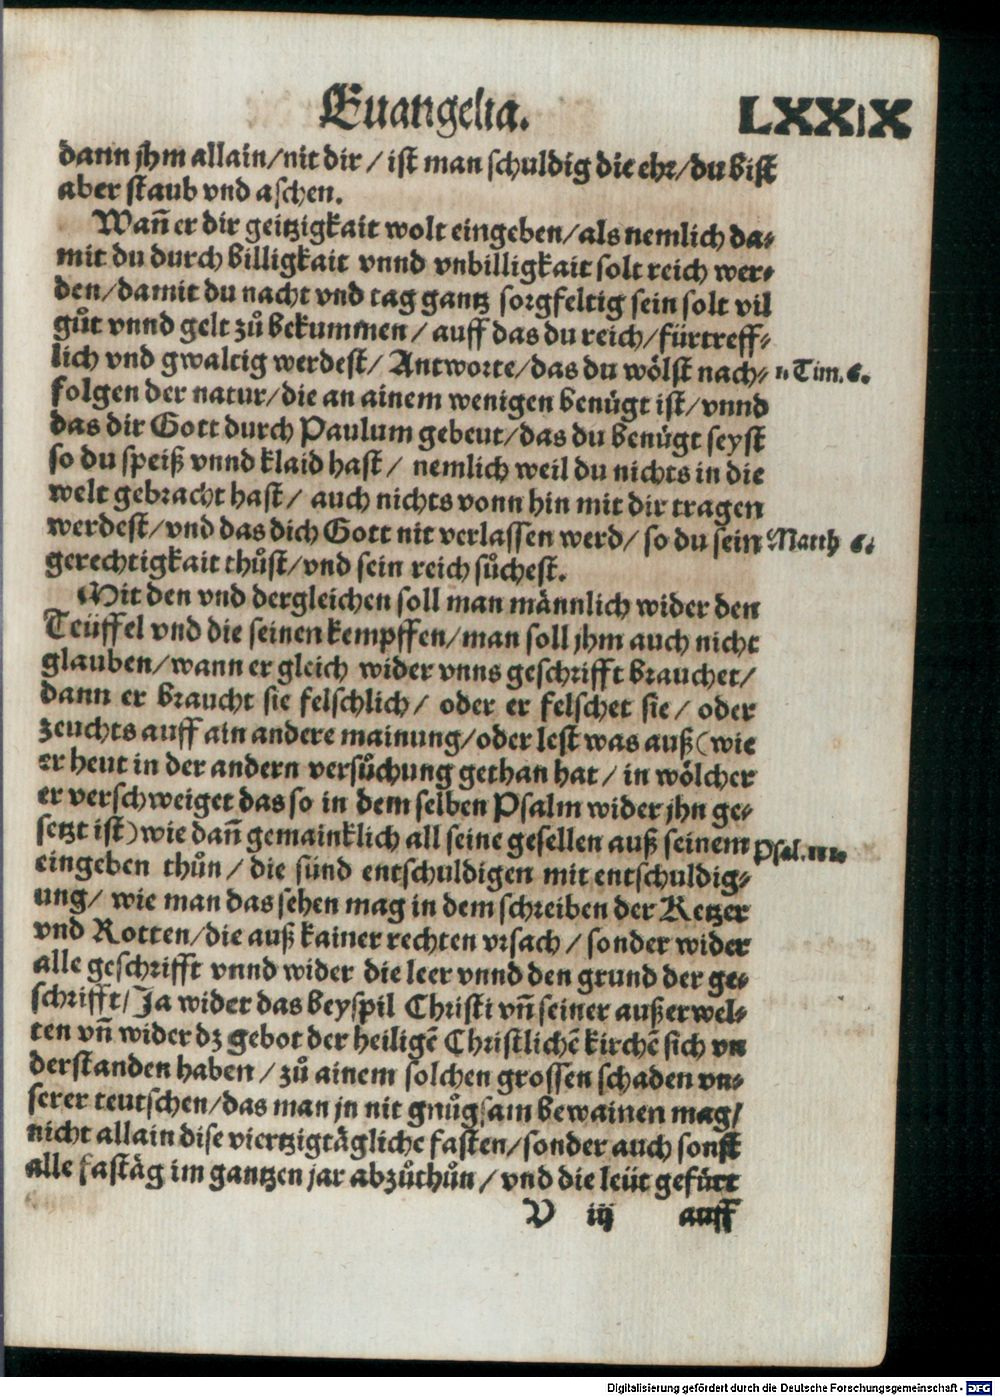 Euangelia. LXXIX
dann jhm allain/nit dir / ist man schuldig die ehr/du bist
aber staub vnd aschen.
Wañ er dir geitzigkait wolt eingeben/als nemlich da⸗
mit du durch billigkait vnnd vnbilligkait solt reich wer⸗
den/damit du nacht vnd tag gantz sorgfeltig sein solt vil
gůt vnnd gelt zů bekummen / auff das du reich/fürtreff⸗
lich vnd gwaltig werdest/ Antworte/das du wölst nach⸗ 1. Tim. 6.
folgen der natur/die an ainem wenigen benügt ist/vnnd
das dir Gott durch Paulum gebeut/das du benügt seyst
so du speiß vnnd klaid hast / nemlich weil du nichts in die
welt gebracht hast / auch nichts vonn hin mit dir tragen
werdest/vnd das dich Gott nit verlassen werd/ so du sein Matth 6.
gerechtigkait thůst/vnd sein reich sůchest.
Mit den vnd dergleichen soll man männlich wider den
Teüffel vnd die seinen kempffen/man soll jhm auch nicht
glauben/wann er gleich wider vnns geschrifft brauchet/
dann er braucht sie felschlich/ oder er felschet sie / oder
zeuchts auff ain andere mainung/oder lest was auß (wie
er heut in der andern versůchung gethan hat / in wölcher
er verschweiget das so in dem selben Psalm wider jhn ge⸗
setzt ist) wie dañ gemainklich all seine gesellen auß seinem Psal.
eingeben thůn / die sünd entschuldigen mit entschuldig⸗
ung/ wie man das sehen mag in dem schreiben der Ketzer
vnd Rotten/die auß kainer rechten vrsach / sonder wider
alle geschrifft vnnd wider die leer vnnd den grund der ge⸗
schrifft/Ja wider das beyspil Christi vñ seiner außerwel⸗
ten vñ wider dz gebot der heiligē Christlichē kirchē sich vn
derstanden haben / zů ainem solchen grossen schaden vn⸗
serer teutschen/das man jn nit gnůgsam bewainen mag/
nicht allain dise viertzigtägliche fasten/sonder auch sonst
alle fastäg im gantzen jar abzůthůn / vnd die leüt gefürt
V iij auff
Digitalisierung gefördert durch die Deutsche Forschungsgemeinschaft - DFG